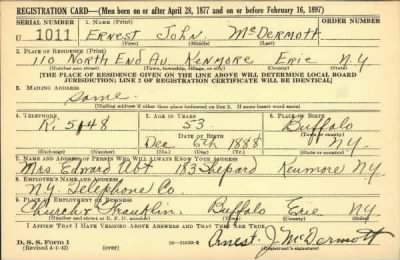 REGISTRATION CARD—(Men born on or after April 28, 1877 and on or before February 16, 1897)
SERIAL NUMBER 1. NAME (Print) ORDER NUMBER
U 1011 Ernest John McDermott
(First) (Middle) (Last)
2. PLACE OF RESIDENCE (Print)
110 North End Av Kenmore Erie N.Y
(Number and street) (Town, township, village, or city) (County) (State)
[THE PLACE OF RESIDENCE GIVEN ON THE LINE ABOVE WILL DETERMINE LOCAL BOARD
JURISDICTION; LINE 2 OF REGISTRATION CERTIFICATE WILL BE IDENTICAL]
3. MAILING ADDRESS
Same.
[Mailing address if other than place indicated on line 2. If same insert word same]
4. TELEPHONE 5. AGE IN YEARS 6. PLACE OF BIRTH
R. 5148 53 Buffalo
DATE OF BIRTH (Town or county)
Dec 6th 1888 N.Y.
(Exchange) (Number) (Mo.) (Day) (Yr.) (State or country)
7. NAME AND ADDRESS OF PERSON WHO WILL ALWAYS KNOW YOUR ADDRESS
Mrs Edward Abt 183 Shepard Kenmore NY
8. EMPLOYER'S NAME AND ADDRESS
N.Y. Telephone Co.
9. PLACE OF EMPLOYMENT OR BUSINESS
Church & Franklin Buffalo Erie NY
(Number and street or R. F. D. number) (Town) (County) (State)
I AFFIRM THAT I HAVE VERIFIED ABOVE ANSWERS AND THAT THEY ARE TRUE.
D. S. S. Form 1
(Revised 4-1-42) (over) Ernest J. McDermott
(Registrant's signature)